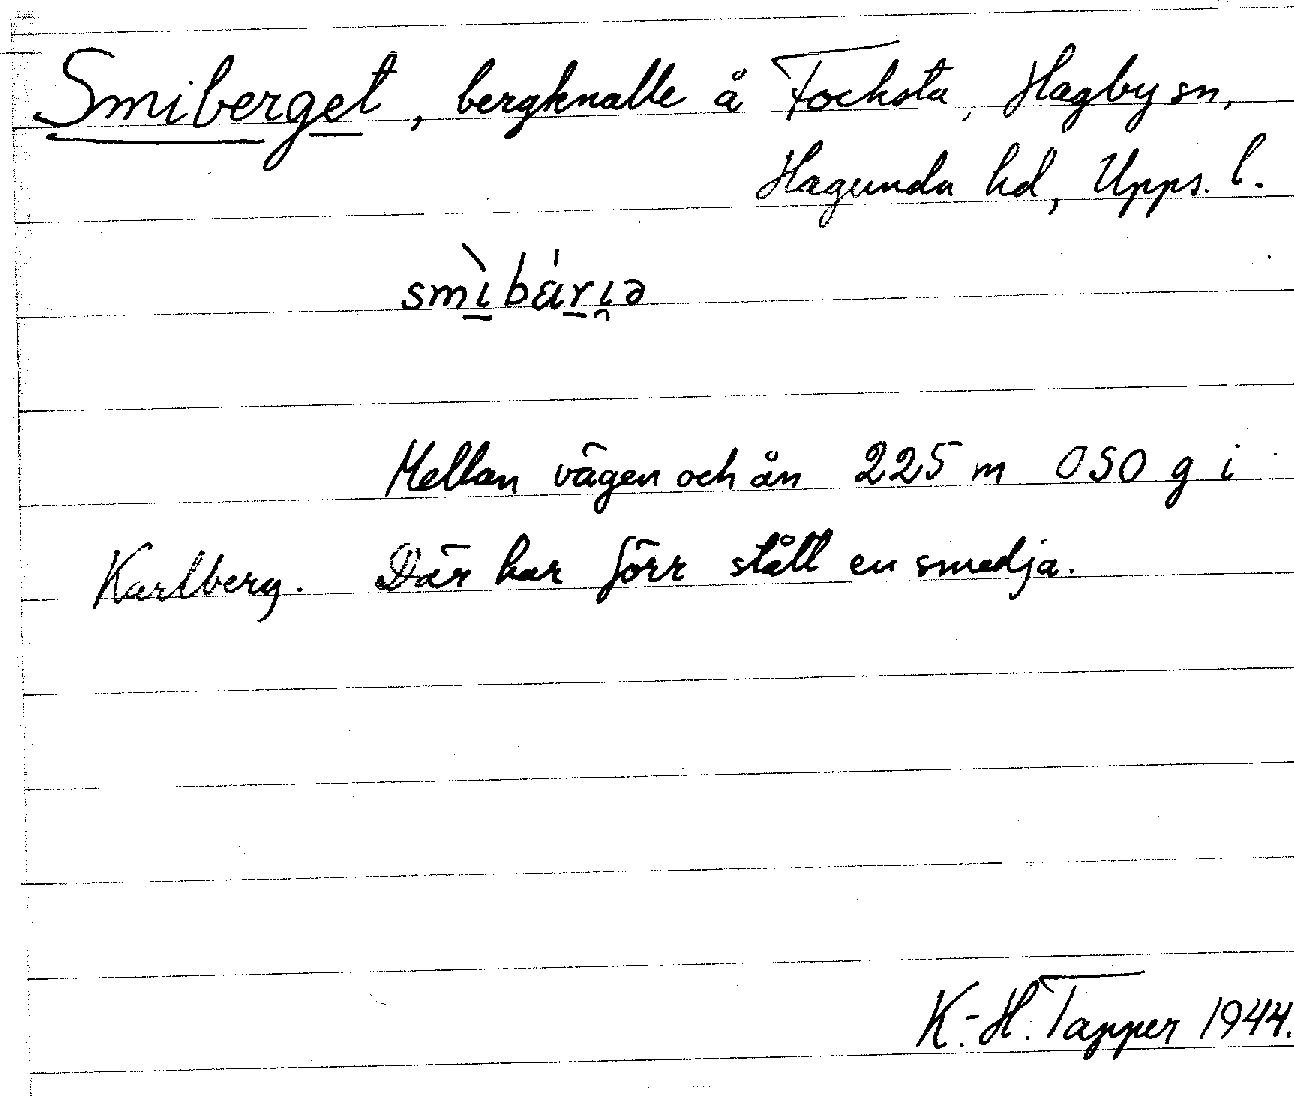 Smiberget, bergknalle å Focksta, Hagby sn,
Hagunda hd, Upps. l.
smìbä́rı̯ə
Mellan vägen och ån 225 m OSO g i
Karlberg. Där har förr stått en smedja.
K.-H. Tapper 1944.